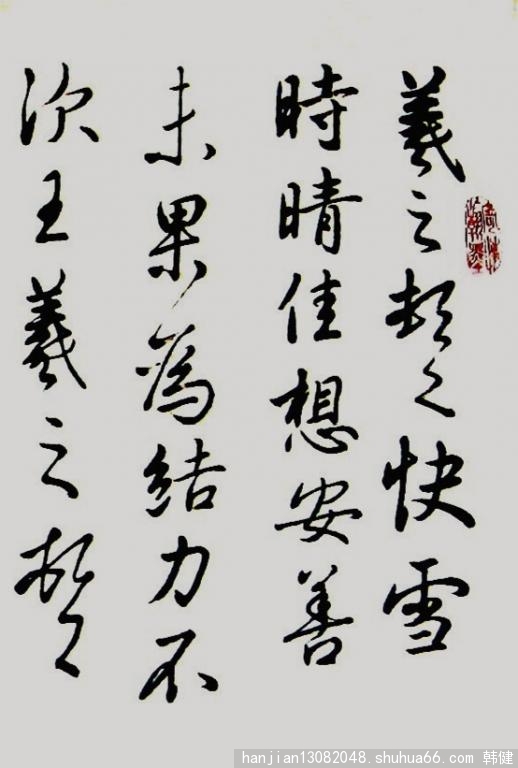 羲之頓首快雪
時晴佳想安善
未果為結力不
次王羲之頓首
hanjian13082048.shuhua66.com 韩健